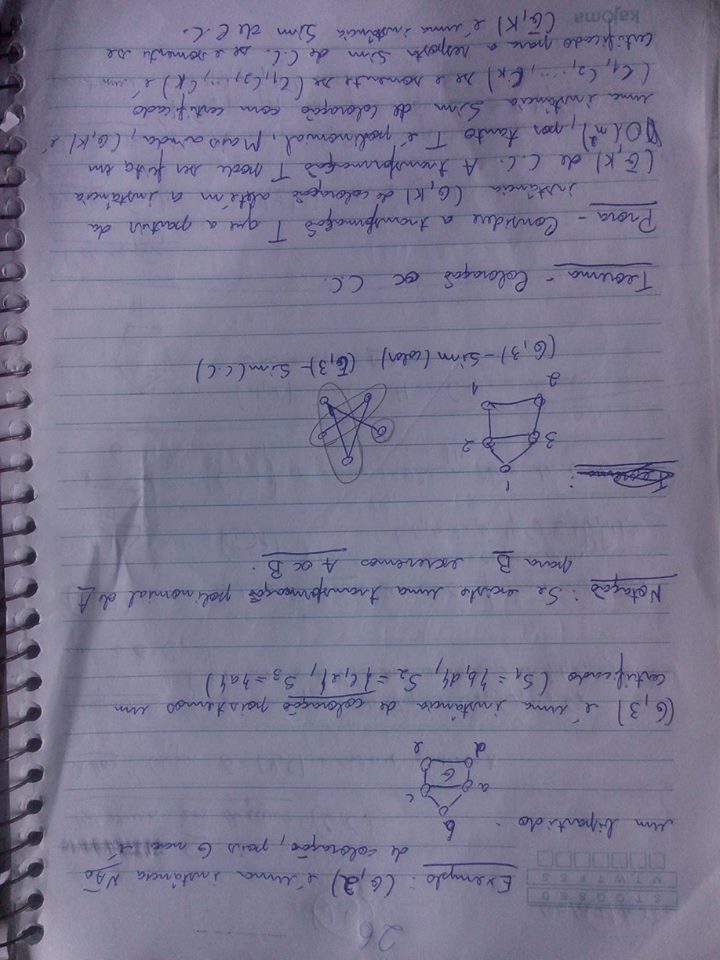 26
Exemplo: (G,2) é uma instância NÃO
de coloração, pois G não é
um bipartido:
b
a
c
G
d
e
(G,3) é uma instância de coloração pois temos um
certificado (S1={b,d}, S2={c,e}, S3={a})
Notação: Se existe uma transformação polinomial de A
para B escrevemos A ∝ B.
1
2
3
1
2
(G,3)-Sim (color) (G̅,3)-Sim (C.C)
Teorema - Coloração ∝ C.C.
Prova - Considere a transformação T que a partir da
instância (G,K) de coloração obtém a instância
(G̅,K) de C.C. A transformação T pode ser feita em
O(n²), por tanto T é polinomial. Mais ainda, (G,K) é
uma instância Sim de coloração com certificado
(C1, C2, ..., CK) se e somente se (C1, C2, ..., CK) é um
certificado para a resposta Sim de C.C. se e somente se
(G̅,K) é uma instância Sim de C.C.
kajoma
S T Q Q S S D
M T W T F S S